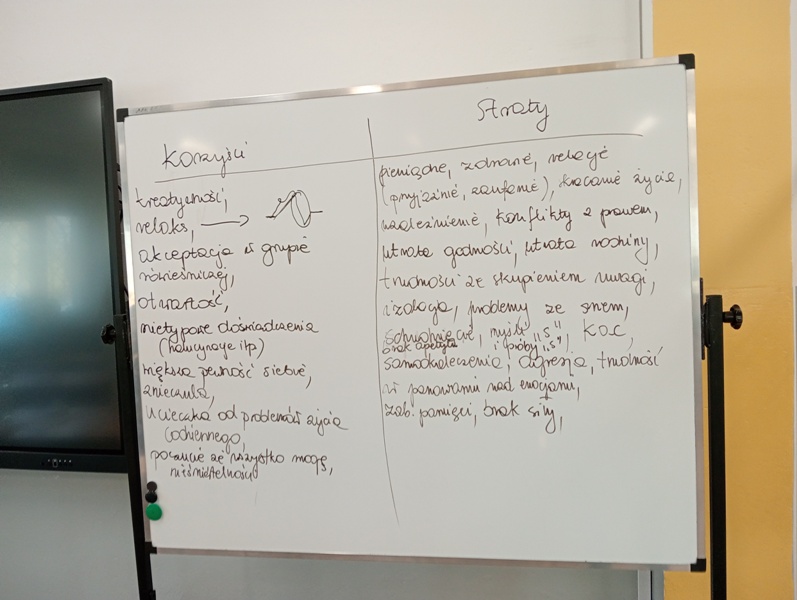 Korzyści
kreatywność,
relaks,
akceptacja w grupie
rówieśniczej,
otwartość,
nietypowe doświadczenia
(halucynacje itp)
większa pewność siebie,
znieczula,
ucieczka od problemów życia
codziennego,
poczucie że wszystko mogę,
nieśmiertelności
Straty
pieniądze, zdrowie, relacje
(przyjaźnie, zaufanie), życie,
uzależnienie, konflikty z prawem,
utrata godności, utrata rodziny,
trudności ze skupieniem uwagi,
izolacja, problemy ze snem,
schudnięcie, myśli "s"
brak apetytu i próby "s",
samookaleczenia, agresja, trudność
w panowaniu nad emocjami,
zab. pamięci, brak siły,